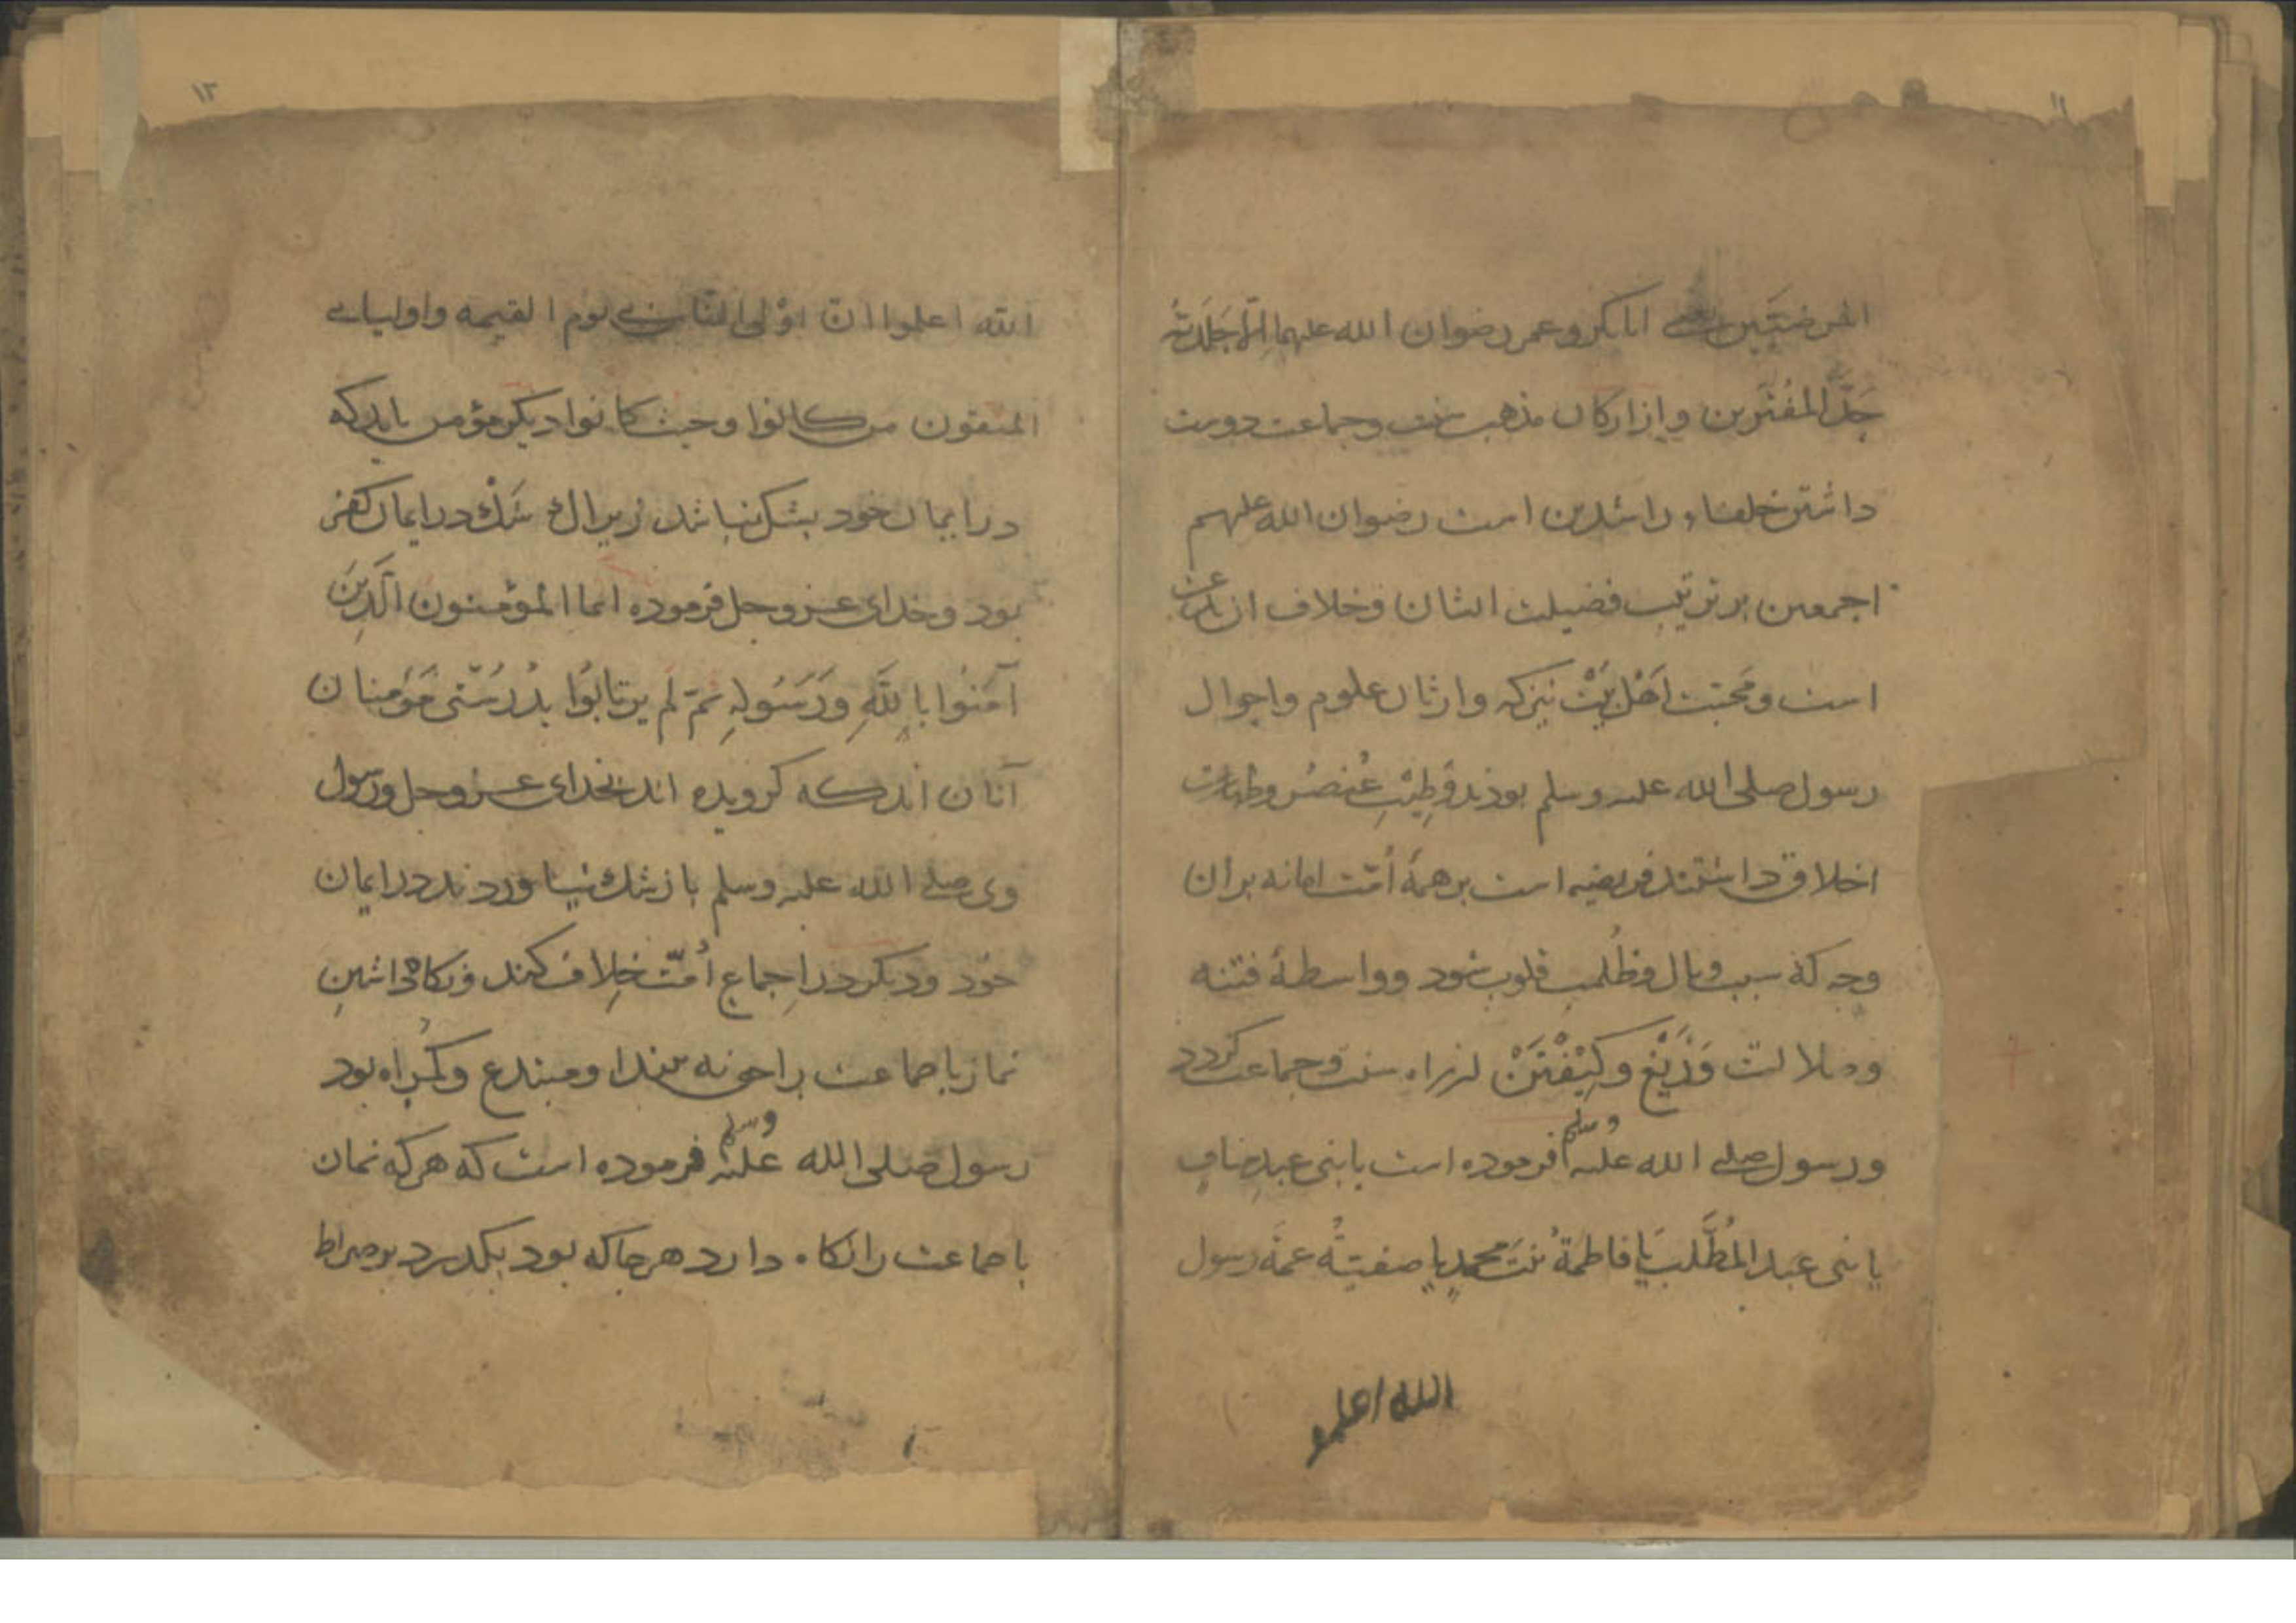 ۱۱
المرضیین یعنی ابابکر و عمر رضوان الله علیهما الا جَلَدتُه
جَلدَ المُفتَرین و از ارکان مذهب سنت و جماعت دوست
داشتن خلفاء راشدین است رضوان الله علیهم
اجمعین بر ترتیب فضیلت ایشان و خلاف ازین
است و محبت اهل بَیْت نیز که وارثان علوم و احوال
رسول صلی الله علیه وسلم بودند و طِیْبِ عُنصُر و طهارت
اخلاق داشتند فریضه است بر همهٔ اُمّت اما نه بران
وجه که سبب وبال و ظُلمت قلوب شود و واسطهٔ فتنه
و ضلالت وَ زَیْغ و کِیْفْتَنْ از راه سنت و جماعت گردد
و رسول صلی الله علیه وسلم فرموده است یا بنی عبدِ منافٍ
یا بنی عبد المُطَّلب یا فاطمَةُ بنتَ محمدٍ یا صفیّةُ عمةَ رسول
الله اعلمو
۱۲
الله اعلموا ان اوْلی الناس بی یوم القیمه و اولیائی
المتقون من کانوا و حیث کانوا دیگر مؤمن باید که
در ایمان خود بشک نباشد زیراک شکْ در ایمان کفر
بود و خدای عزوجل فرموده انما المؤمنون الَّذِینَ
آمَنُوا بِاللَّهِ وَرَسُولِهِ ثمّ لَم یرتابُوا بدُرُستی مؤمنان
آنان اندکه گرویده اند بخدای عزوجل و رسول
وی صلی الله علیه وسلم باز شک نیاوردند در ایمان
خود و دیگر در اِجماع اُمّت خِلاف کند و نگاه داشتنِ
نماز با جماعت را حق نه بیندا و مبتدع و گمراه بود
رسول صلی الله عَلیْه وسلم فرموده است که هرکه نمان
با جماعت را نگاه دارد هر جا که بود بگذرد بر صراط